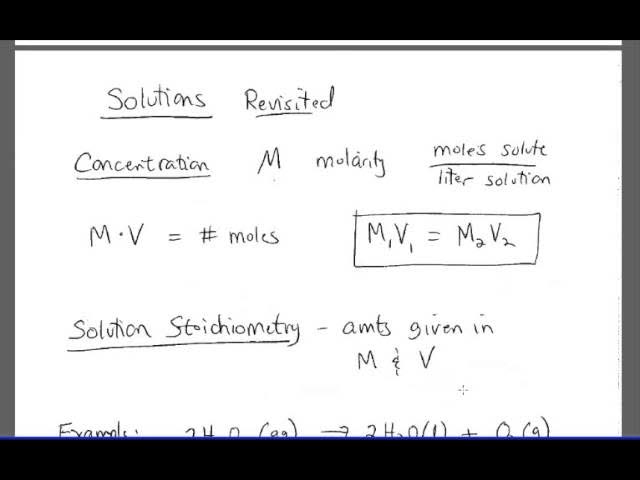 Solutions Revisited
Concentration M molarity moles solute
liter solution
M·V = # moles M₁V₁ = M₂V₂
Solution Stoichiometry - amts given in
M & V
Example: (aq) → 2H₂O(l) + O₂(g)